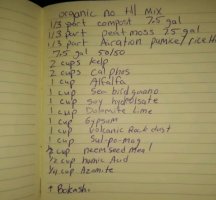 organic no till mix
1/3 part compost 7.5 gal
1/3 part peat moss 7.5 gal
1/3 part Aeration pumice/rice H
7.5 gal 50/50
2 cups kelp
2 cups cal phos
1 cup Alfalfa
1 cup Sea bird guano
1 cup Soy hydrolsate
1 cup Dolomite Lime
1 cup Gypsum
1 cup Volcanic Rock dust
1 cup Sul-po-mag
1/2 cup neem seed meal
1/2 cup humic Acid
1/4 cup Azomite
↑ Bokashi